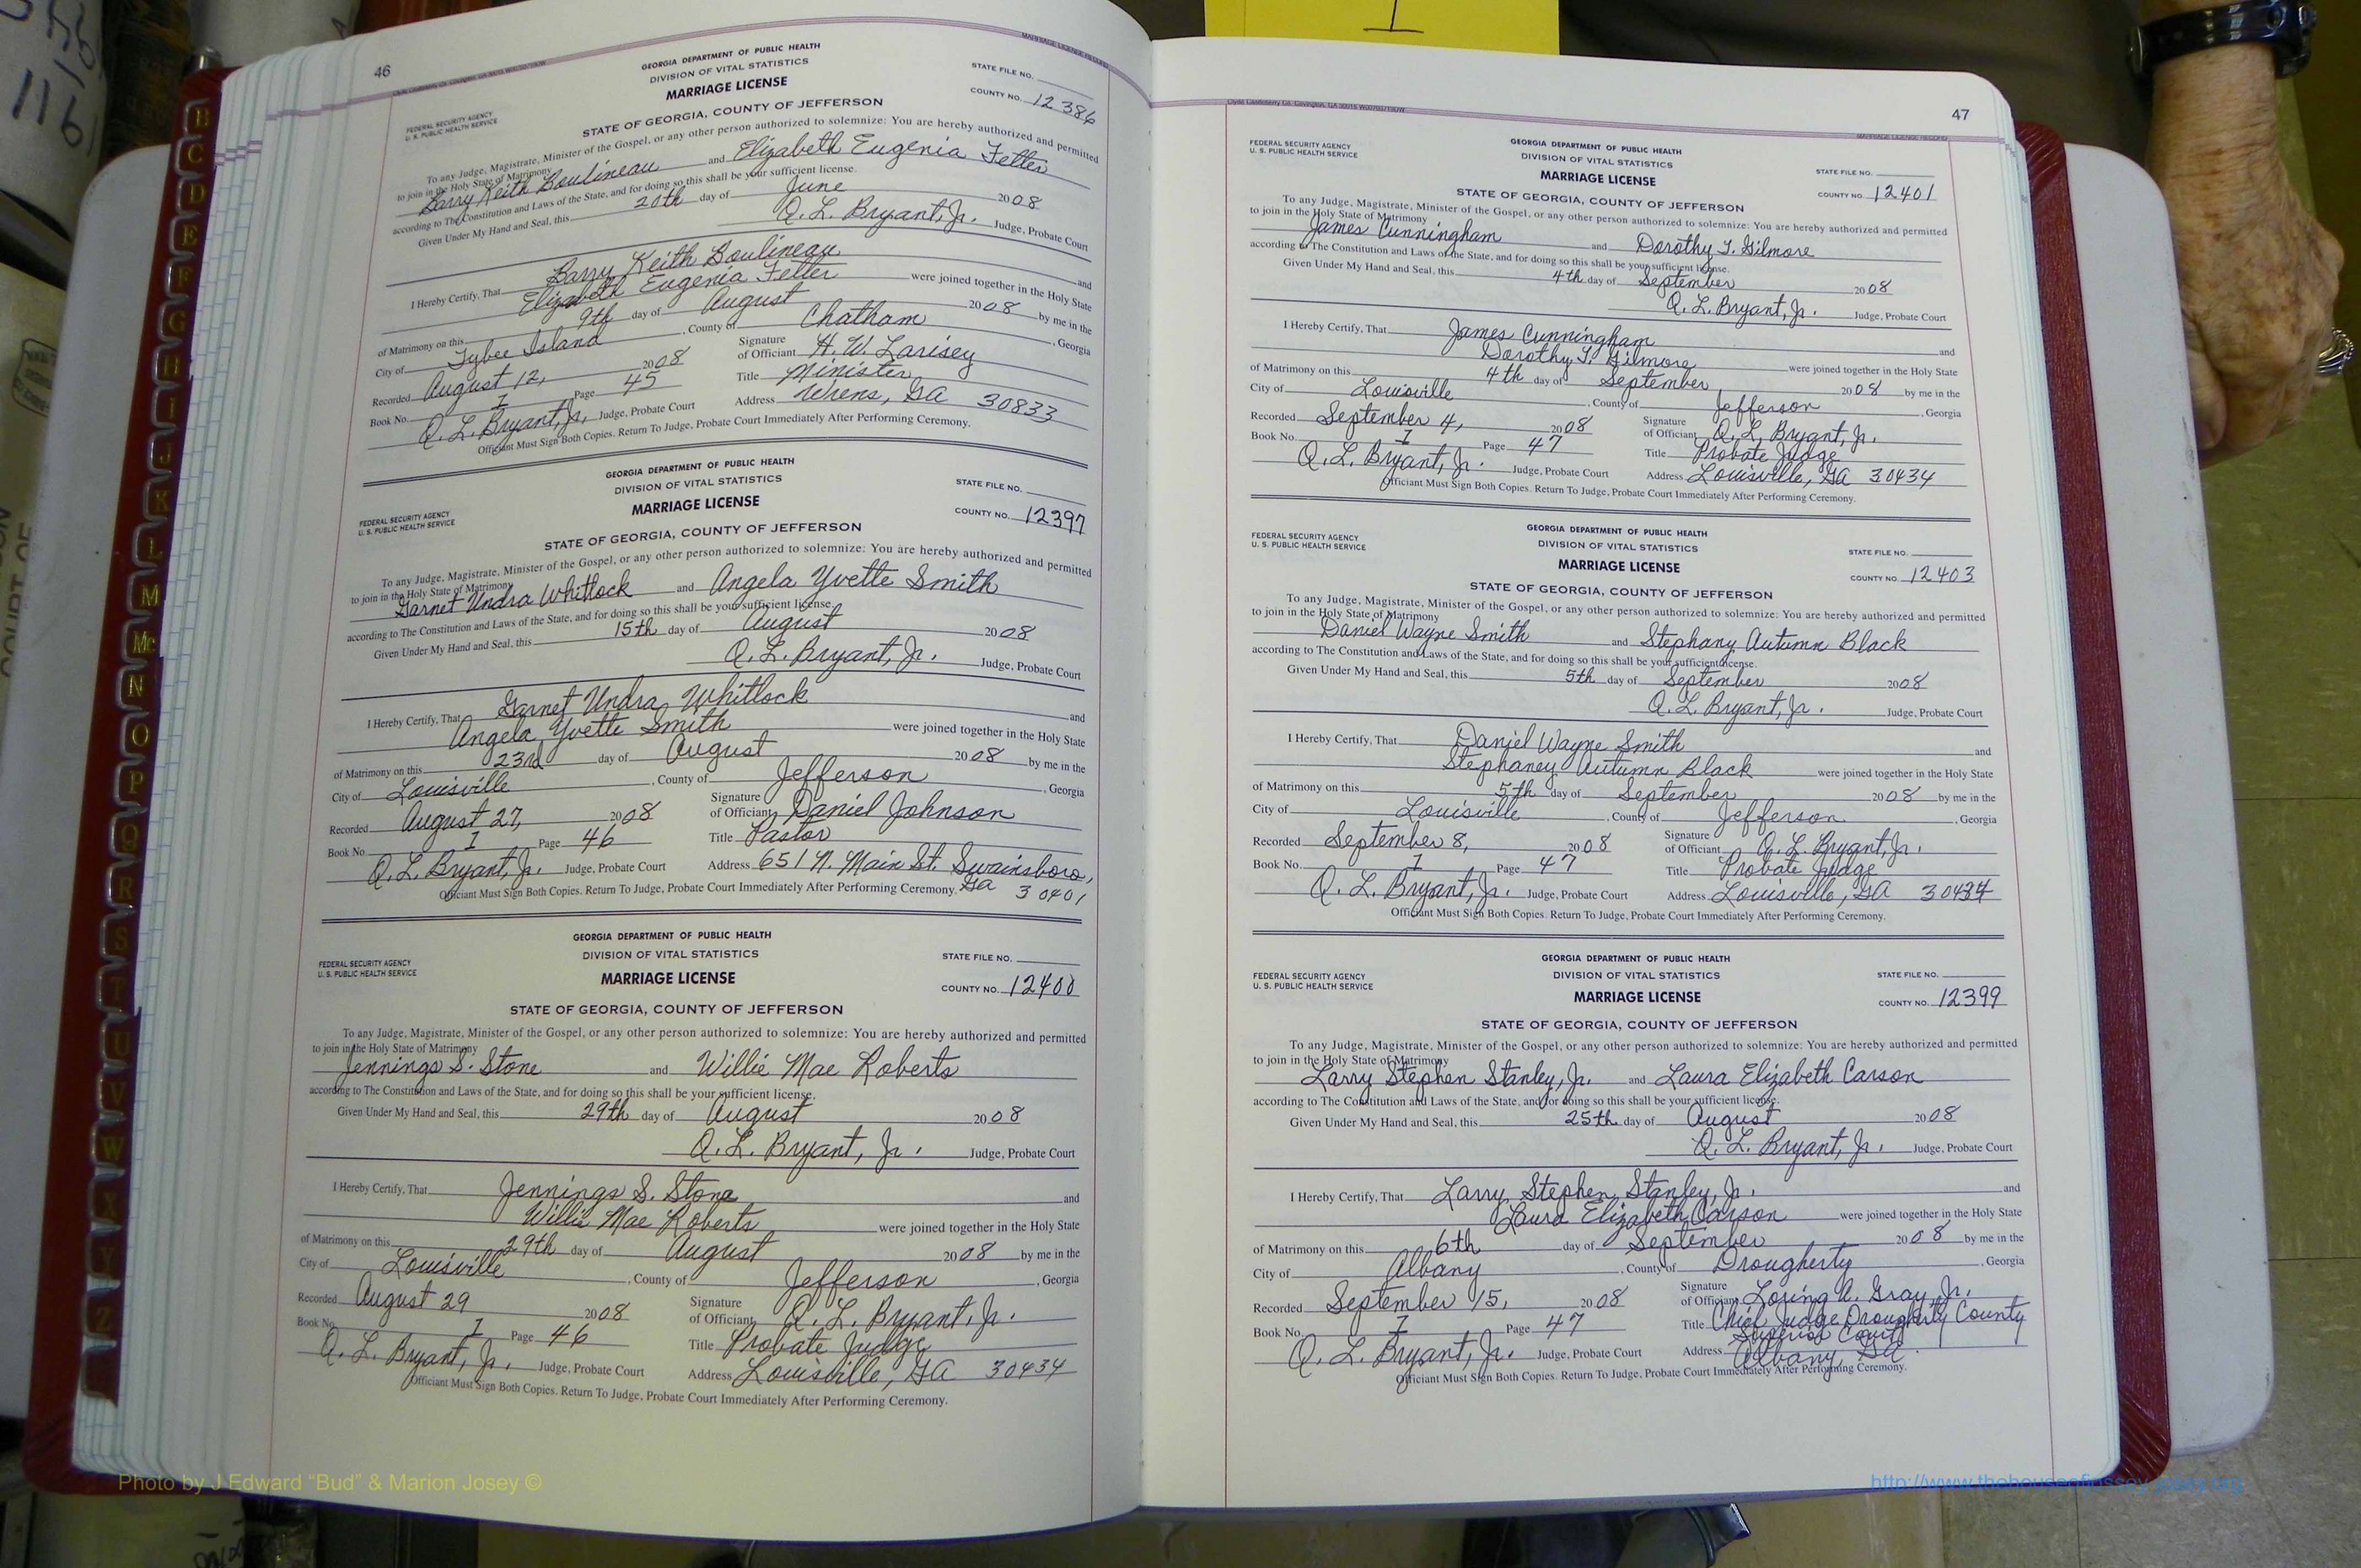 1
46
GEORGIA DEPARTMENT OF PUBLIC HEALTH
DIVISION OF VITAL STATISTICS
MARRIAGE LICENSE
STATE OF GEORGIA, COUNTY OF JEFFERSON
FEDERAL SECURITY AGENCY
U. S. PUBLIC HEALTH SERVICE
STATE FILE NO.
COUNTY NO. 12386
To any Judge, Magistrate, Minister of the Gospel, or any other person authorized to solemnize: You are hereby authorized and permitted
to join in the Holy State of Matrimony
Barry Keith Boulineau and Elizabeth Eugenia Fetter
according to The Constitution and Laws of the State, and for doing so this shall be your sufficient license.
Given Under My Hand and Seal, this 20th day of June 2008
Q. L. Bryant, Jr. Judge, Probate Court
I Hereby Certify, That Barry Keith Boulineau and
Elizabeth Eugenia Fetter were joined together in the Holy State
of Matrimony on this 9th day of August 2008 by me in the
City of Tybee Island, County of Chatham, Georgia
Recorded August 12, 2008 Signature of Officiant H. W. Larisey
Book No. I Page 45 Title Minister
Q. L. Bryant, Jr. Judge, Probate Court Address Wrens, GA 30833
Officiant Must Sign Both Copies. Return To Judge, Probate Court Immediately After Performing Ceremony.
GEORGIA DEPARTMENT OF PUBLIC HEALTH
DIVISION OF VITAL STATISTICS
MARRIAGE LICENSE
STATE OF GEORGIA, COUNTY OF JEFFERSON
FEDERAL SECURITY AGENCY
U. S. PUBLIC HEALTH SERVICE
STATE FILE NO.
COUNTY NO. 12397
To any Judge, Magistrate, Minister of the Gospel, or any other person authorized to solemnize: You are hereby authorized and permitted
to join in the Holy State of Matrimony
Garnet Undra Whitlock and Angela Yvette Smith
according to The Constitution and Laws of the State, and for doing so this shall be your sufficient license.
Given Under My Hand and Seal, this 15th day of August 2008
Q. L. Bryant, Jr. Judge, Probate Court
I Hereby Certify, That Garnet Undra Whitlock and
Angela Yvette Smith were joined together in the Holy State
of Matrimony on this 23rd day of August 2008 by me in the
City of Louisville, County of Jefferson, Georgia
Recorded August 27, 2008 Signature of Officiant Daniel Johnson
Book No. I Page 46 Title Pastor
Q. L. Bryant, Jr. Judge, Probate Court Address 651 N. Main St. Swainsboro,
Officiant Must Sign Both Copies. Return To Judge, Probate Court Immediately After Performing Ceremony. Ga 30401
GEORGIA DEPARTMENT OF PUBLIC HEALTH
DIVISION OF VITAL STATISTICS
MARRIAGE LICENSE
STATE OF GEORGIA, COUNTY OF JEFFERSON
FEDERAL SECURITY AGENCY
U. S. PUBLIC HEALTH SERVICE
STATE FILE NO.
COUNTY NO. 12400
To any Judge, Magistrate, Minister of the Gospel, or any other person authorized to solemnize: You are hereby authorized and permitted
to join in the Holy State of Matrimony
Jennings S. Stone and Willie Mae Roberts
according to The Constitution and Laws of the State, and for doing so this shall be your sufficient license.
Given Under My Hand and Seal, this 29th day of August 2008
Q. L. Bryant, Jr. Judge, Probate Court
I Hereby Certify, That Jennings S. Stone and
Willie Mae Roberts were joined together in the Holy State
of Matrimony on this 29th day of August 2008 by me in the
City of Louisville, County of Jefferson, Georgia
Recorded August 29 2008 Signature of Officiant Q. L. Bryant, Jr.
Book No. I Page 46 Title Probate Judge
Q. L. Bryant, Jr. Judge, Probate Court Address Louisville, GA 30434
Officiant Must Sign Both Copies. Return To Judge, Probate Court Immediately After Performing Ceremony.
47
MARRIAGE LICENSE RECORD
FEDERAL SECURITY AGENCY
U. S. PUBLIC HEALTH SERVICE
GEORGIA DEPARTMENT OF PUBLIC HEALTH
DIVISION OF VITAL STATISTICS
MARRIAGE LICENSE
STATE OF GEORGIA, COUNTY OF JEFFERSON
STATE FILE NO.
COUNTY NO. 12401
To any Judge, Magistrate, Minister of the Gospel, or any other person authorized to solemnize: You are hereby authorized and permitted
to join in the Holy State of Matrimony
James Cunningham and Dorothy T. Gilmore
according to The Constitution and Laws of the State, and for doing so this shall be your sufficient license.
Given Under My Hand and Seal, this 4th day of September 2008
Q. L. Bryant, Jr. Judge, Probate Court
I Hereby Certify, That James Cunningham and
Dorothy T. Gilmore were joined together in the Holy State
of Matrimony on this 4th day of September 2008 by me in the
City of Louisville, County of Jefferson, Georgia
Recorded September 4, 2008 Signature of Officiant Q. L. Bryant, Jr.
Book No. I Page 47 Title Probate Judge
Q. L. Bryant, Jr. Judge, Probate Court Address Louisville, GA 30434
Officiant Must Sign Both Copies. Return To Judge, Probate Court Immediately After Performing Ceremony.
FEDERAL SECURITY AGENCY
U. S. PUBLIC HEALTH SERVICE
GEORGIA DEPARTMENT OF PUBLIC HEALTH
DIVISION OF VITAL STATISTICS
MARRIAGE LICENSE
STATE OF GEORGIA, COUNTY OF JEFFERSON
STATE FILE NO.
COUNTY NO. 12403
To any Judge, Magistrate, Minister of the Gospel, or any other person authorized to solemnize: You are hereby authorized and permitted
to join in the Holy State of Matrimony
Daniel Wayne Smith and Stephany Autumn Black
according to The Constitution and Laws of the State, and for doing so this shall be your sufficient license.
Given Under My Hand and Seal, this 5th day of September 2008
Q. L. Bryant, Jr. Judge, Probate Court
I Hereby Certify, That Daniel Wayne Smith and
Stephaney Autumn Black were joined together in the Holy State
of Matrimony on this 5th day of September 2008 by me in the
City of Louisville, County of Jefferson, Georgia
Recorded September 8, 2008 Signature of Officiant Q. L. Bryant, Jr.
Book No. I Page 47 Title Probate Judge
Q. L. Bryant, Jr. Judge, Probate Court Address Louisville, GA 30434
Officiant Must Sign Both Copies. Return To Judge, Probate Court Immediately After Performing Ceremony.
FEDERAL SECURITY AGENCY
U. S. PUBLIC HEALTH SERVICE
GEORGIA DEPARTMENT OF PUBLIC HEALTH
DIVISION OF VITAL STATISTICS
MARRIAGE LICENSE
STATE OF GEORGIA, COUNTY OF JEFFERSON
STATE FILE NO.
COUNTY NO. 12399
To any Judge, Magistrate, Minister of the Gospel, or any other person authorized to solemnize: You are hereby authorized and permitted
to join in the Holy State of Matrimony
Larry Stephen Stanley, Jr. and Laura Elizabeth Carson
according to The Constitution and Laws of the State, and for doing so this shall be your sufficient license.
Given Under My Hand and Seal, this 25th day of August 2008
Q. L. Bryant, Jr. Judge, Probate Court
I Hereby Certify, That Larry Stephen Stanley, Jr. and
Laura Elizabeth Carson were joined together in the Holy State
of Matrimony on this 6th day of September 2008 by me in the
City of Albany, County of Drougherty, Georgia
Recorded September 15, 2008 Signature of Officiant Loring A. Gray, Jr.
Book No. I Page 47 Title Chief Judge Drougherty County
Superior Court
Q. L. Bryant, Jr. Judge, Probate Court Address Albany, GA.
Officiant Must Sign Both Copies. Return To Judge, Probate Court Immediately After Performing Ceremony.
B
C
D
E
F
G
H
I
J
K
L
M
Mc
N
O
P
Q
R
S
T
U
V
W
X
Y
Z
116
COURT OF
Photo by J Edward “Bud” & Marion Josey ©